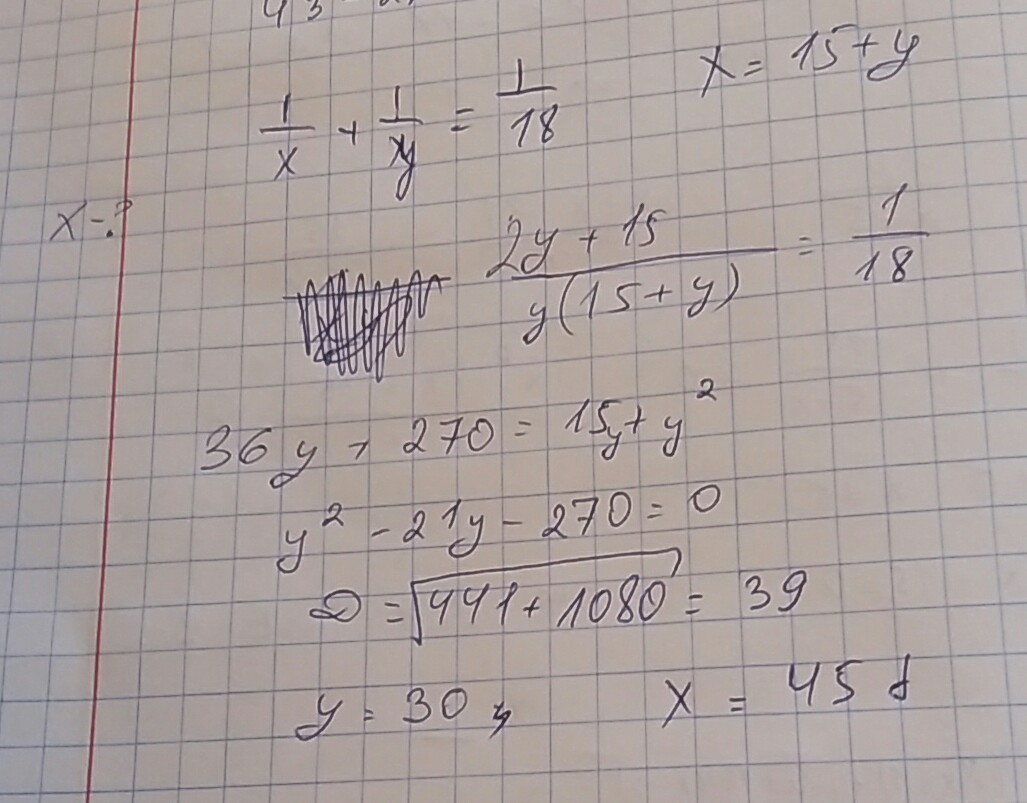 1/x + 1/y = 1/18 x = 15 + y
x - ?
(2y + 15)/(y(15 + y)) = 1/18
36y + 270 = 15y + y²
y² - 21y - 270 = 0
D = √(441 + 1080) = 39
y = 30 x = 45